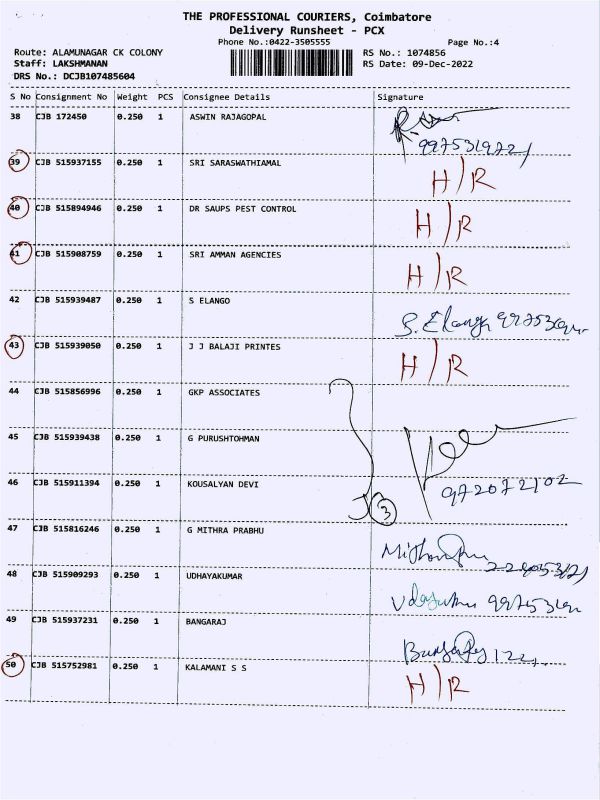 THE PROFESSIONAL COURIERS, Coimbatore
Delivery Runsheet - PCX
Phone No.:0422-3505555 Page No.:4
Route: ALAMUNAGAR CK COLONY RS No.: 1074856
Staff: LAKSHMANAN RS Date: 09-Dec-2022
DRS No.: DCJB107485604
S No Consignment No Weight PCS Consignee Details Signature
38 CJB 172450 0.250 1 ASWIN RAJAGOPAL
39 CJB 515937155 0.250 1 SRI SARASWATHIAMAL
H/R
40 CJB 515894946 0.250 1 DR SAUPS PEST CONTROL
H/R
41 CJB 515908759 0.250 1 SRI AMMAN AGENCIES
H/R
42 CJB 515939487 0.250 1 S ELANGO
43 CJB 515939050 0.250 1 J J BALAJI PRINTES
H/R
44 CJB 515856996 0.250 1 GKP ASSOCIATES
45 CJB 515939438 0.250 1 G PURUSHTOHMAN
46 CJB 515911394 0.250 1 KOUSALYAN DEVI
3
47 CJB 515816246 0.250 1 G MITHRA PRABHU
48 CJB 515909293 0.250 1 UDHAYAKUMAR
49 CJB 515937231 0.250 1 BANGARAJ
50 CJB 515752981 0.250 1 KALAMANI S S
H/R